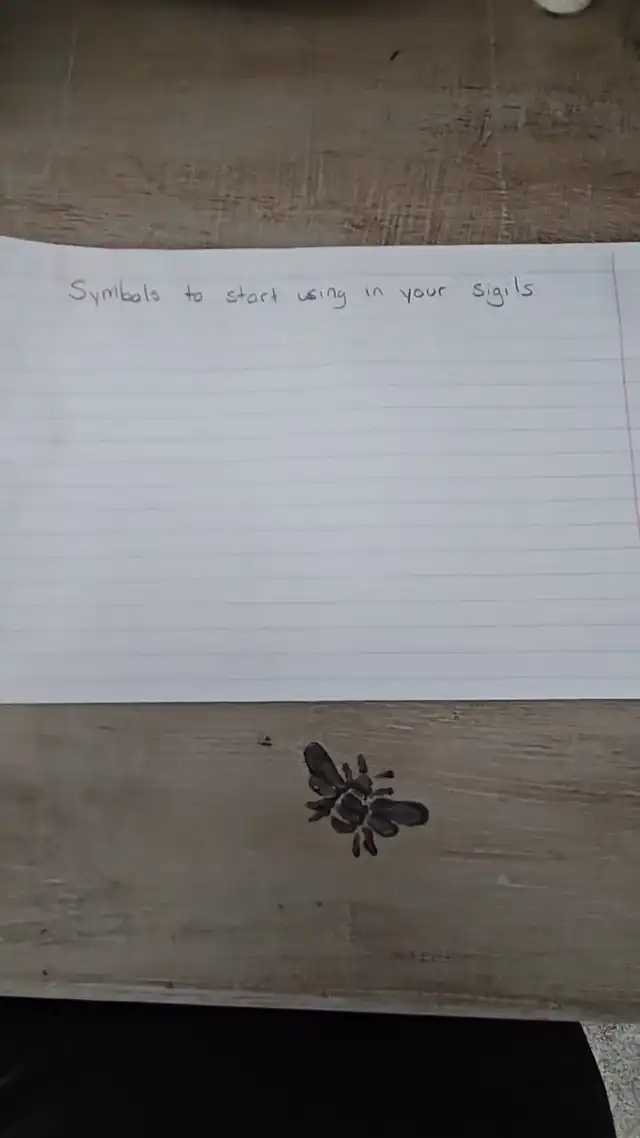 Symbols to start using in your sigils